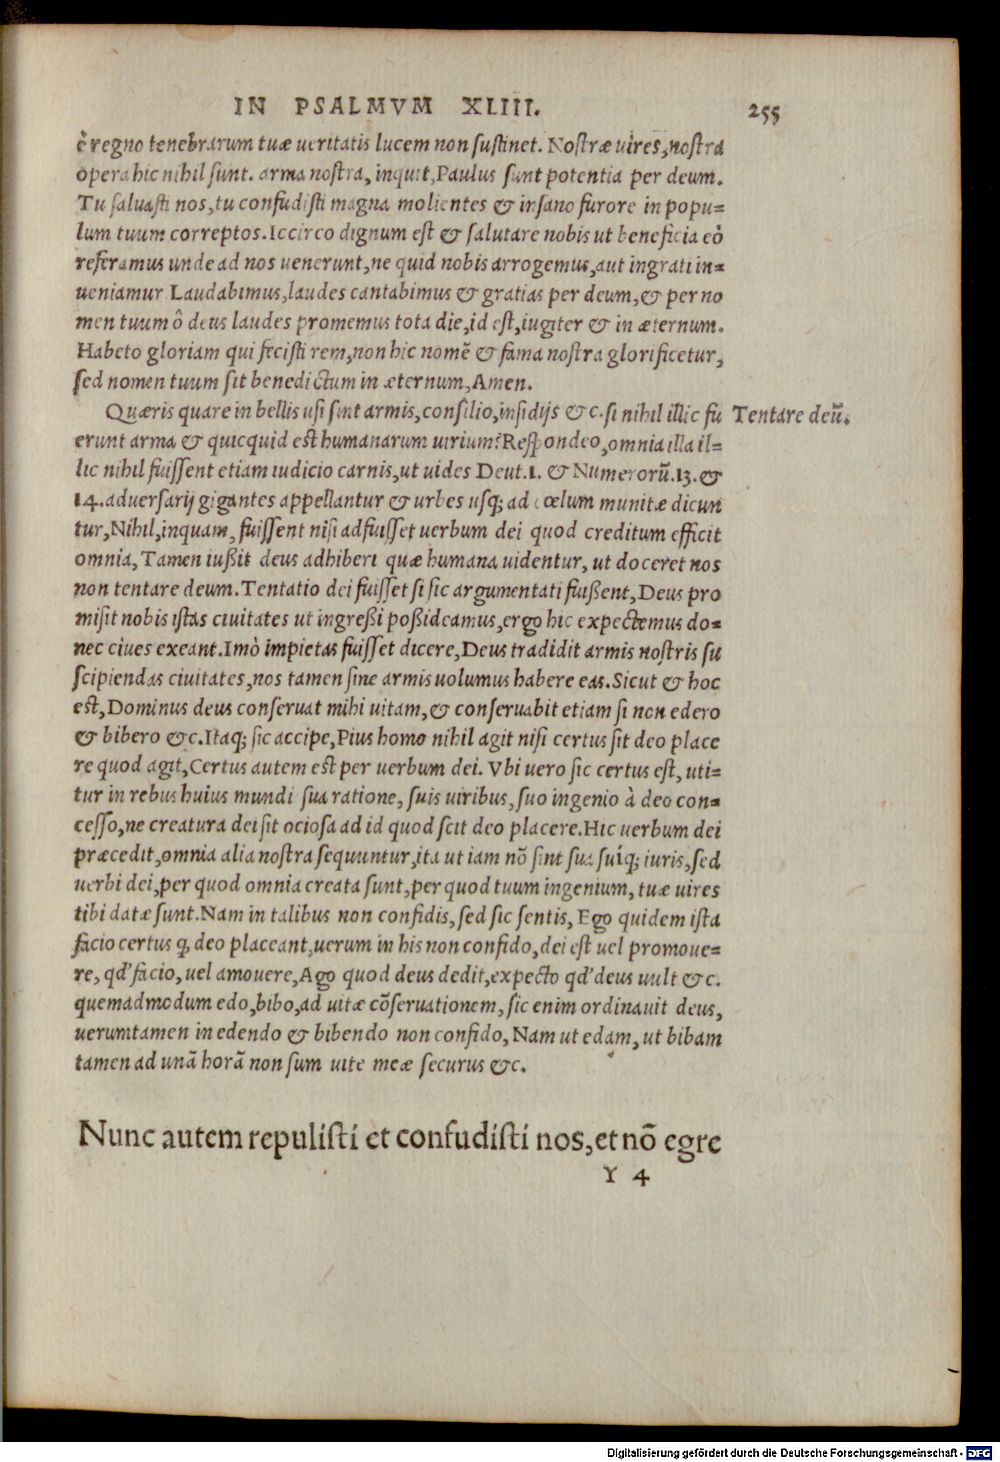 IN PSALMVM XLIIII. 255
è regno tenebrarum tuæ ueritatis lucem non sustinet. Nostræ uires, nostra
opera hic nihil sunt. arma nostra, inquit, Paulus sunt potentia per deum.
Tu saluasti nos, tu confudisti magna molientes & insano furore in popu=
lum tuum correptos. Iccirco dignum est & salutare nobis ut beneficia eò
referamus unde ad nos uenerunt, ne quid nobis arrogemus, aut ingrati in=
ueniamur Laudabimus, laudes cantabimus & gratias per deum, & per no
men tuum ô deus laudes promemus tota die, id est, iugiter & in æternum.
Habeto gloriam qui fecisti rem, non hic nomẽ & fama nostra glorificetur,
sed nomen tuum sit benedictum in æternum, Amen.
Quæris quare in bellis usi sint armis, consilio, insidijs &c. si nihil illic fu
Tentare deũ.
erunt arma & quicquid est humanarum uirium? Respondeo, omnia illa il=
lic nihil fuissent etiam iudicio carnis, ut uides Deut.1. & Numerorũ.13. &
14. aduersarij gigantes appellantur & urbes usq; ad cœlum munitæ dicun
tur, Nihil, inquam, fuissent nisi adfuisset uerbum dei quod creditum efficit
omnia, Tamen iußit deus adhiberi quæ humana uidentur, ut doceret nos
non tentare deum. Tentatio dei fuisset si sic argumentati fuißent, Deus pro
misit nobis istas ciuitates ut ingreßi poßideamus, ergo hic expectemus do=
nec ciues exeant. Imò impietas fuisset dicere, Deus tradidit armis nostris su
scipiendas ciuitates, nos tamen sine armis uolumus habere eas. Sicut & hoc
est, Dominus deus conseruat mihi uitam, & conseruabit etiam si non edero
& bibero &c. Itaq; sic accipe, Pius homo nihil agit nisi certus sit deo place
re quod agit, Certus autem est per uerbum dei. Vbi uero sic certus est, uti=
tur in rebus huius mundi sua ratione, suis uiribus, suo ingenio à deo con=
cesso, ne creatura dei sit ociosa ad id quod scit deo placere. Hic uerbum dei
præcedit, omnia alia nostra sequuntur, ita ut iam nõ sint sua suiq; iuris, sed
uerbi dei, per quod omnia creata sunt, per quod tuum ingenium, tuæ uires
tibi datæ sunt. Nam in talibus non confidis, sed sic sentis, Ego quidem ista
facio certus q̃ deo placeant, uerum in his non confido, dei est uel promoue=
re, qđ facio, uel amouere, Ago quod deus dedit, expecto qđ deus uult &c.
quemadmodum edo, bibo, ad uitæ cõseruationem, sic enim ordinauit deus,
uerumtamen in edendo & bibendo non confido, Nam ut edam, ut bibam
tamen ad unã horã non sum uite meæ securus &c.
Nunc autem repulisti et confudisti nos, et nõ egre
Y 4
Digitalisierung gefördert durch die Deutsche Forschungsgemeinschaft - DFG